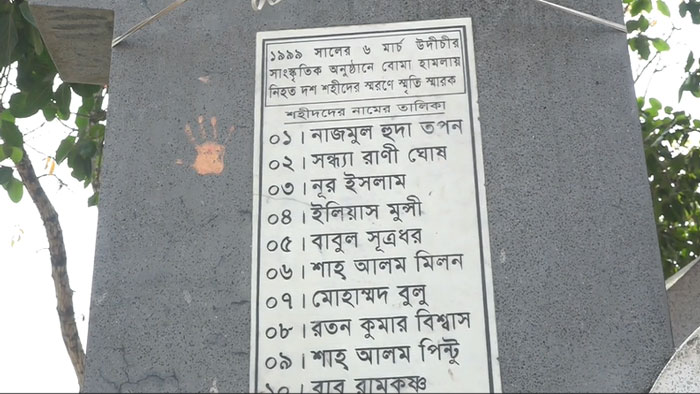 ১৯৯৯ সালের ৬ মার্চ উদীচীর
সাংস্কৃতিক অনুষ্ঠানে বোমা হামলায়
নিহত দশ শহীদের স্মরণে স্মৃতি স্মারক
শহীদদের নামের তালিকা
০১। নাজমুল হুদা তপন
০২। সন্ধ্যা রাণী ঘোষ
০৩। নূর ইসলাম
০৪। ইলিয়াস মুন্সী
০৫। বাবুল সূত্রধর
০৬। শাহ আলম মিলন
০৭। মোহাম্মদ বুলু
০৮। রতন কুমার বিশ্বাস
০৯। শাহ আলম পিন্টু
১০। বাবু রামকৃষ্ণ